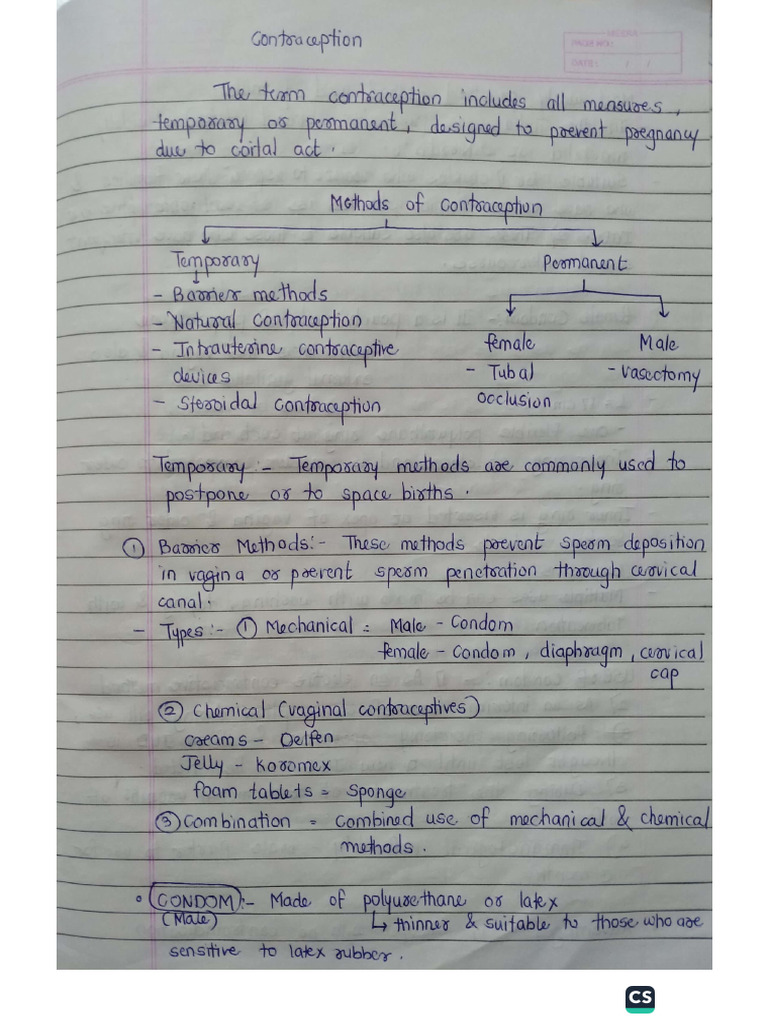 Contraception
DATE: / /
The term contraception includes all measures,
temporary or permanent, designed to prevent pregnancy
due to coital act.
Methods of contraception
Temporary
Permanent
- Barrier methods
- Natural contraception
- Intrauterine contraceptive
devices
- Steroidal contraception
female
- Tubal
occlusion
Male
- vasectomy
Temporary :- Temporary methods are commonly used to
postpone or to space births.
① Barrier Methods :- These methods prevent sperm deposition
in vagina or prevent sperm penetration through cervical
canal.
- Types :- ① Mechanical = Male - Condom
female - Condom, diaphragm, cervical
cap
② Chemical (vaginal contraceptives)
creams - Delfen
Jelly - Koromex
foam tablets = Sponge
③ Combination = combined use of mechanical & chemical
methods.
° CONDOM :- Made of polyurethane or latex
(Male) ↳ thinner & suitable to those who are
sensitive to latex rubber.
CS